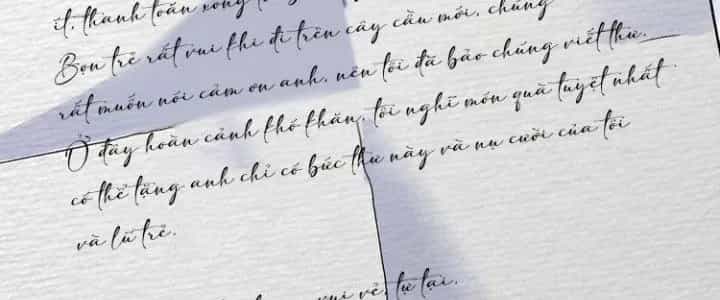 ít, thanh toán xong
Bọn trẻ rất vui khi đi trên cây cầu mới, chúng
rất muốn nói cảm ơn anh, nên tôi đã bảo chúng viết thư.
Ở đây hoàn cảnh khó khăn, tôi nghĩ món quà tuyệt nhất
có thể tặng anh chỉ có bức thư này và nụ cười của tôi
và lũ trẻ.
vui vẻ, tự tại.